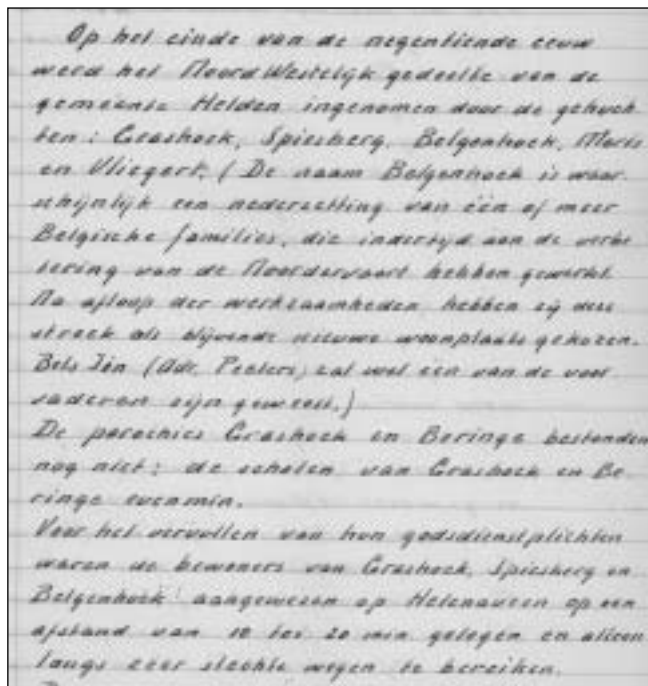 Op het einde van de negentiende eeuw
werd het NoordWestelijk gedeelte van de
gemeente Helden ingenomen door de gehuch
ten: Grashoek, Spiesberg, Belgenhoek, Maris
en Vliegert. (De naam Belgenhoek is waar
schijnlijk een nederzetting van één of meer
Belgische families, die indertijd aan de verbe
tering van de Noordervaart hebben gewerkt.
Na afloop der werkzaamheden hebben zij deze
streek als blijvende nieuwe woonplaats gekozen.
Bels Jèn (Adr. Peeters) zal wel één van de voor
vaderen zijn geweest.)
De parochies Grashoek en Beringe bestonden
nog niet; de scholen van Grashoek en Be
ringe evenmin.
Voor het vervullen van hun godsdienstplichten
waren de bewoners van Grashoek, Spiesberg en
Belgenhoek aangewezen op Helenaveen op een
afstand van tot 20 min. gelegen en alleen
langs zeer slechte wegen te bereiken.